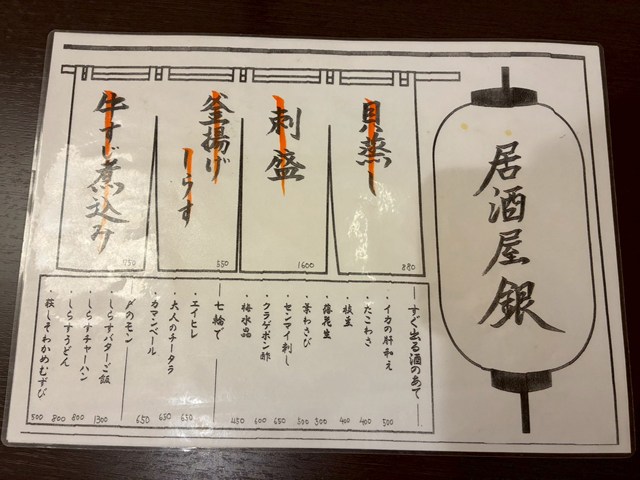 居酒屋銀
貝蒸し
880
刺盛
1600
釜揚げ
しらす
550
牛すじ煮込み
750
―すぐ出る酒のあて―
・イカの肝和え 500
・たこわさ 400
・枝豆 400
・落花生 300
・葉わさび 300
・センマイ刺し 650
・クラゲポン酢 600
・梅水晶 450
―七輪で―
・エイヒレ 650
・大人のチータラ 650
・カマンベール 650
―〆のモン―
・しらすバターご飯 1300
・しらすチャーハン 800
・しらすうどん 800
・萩しそわかめむすび 500